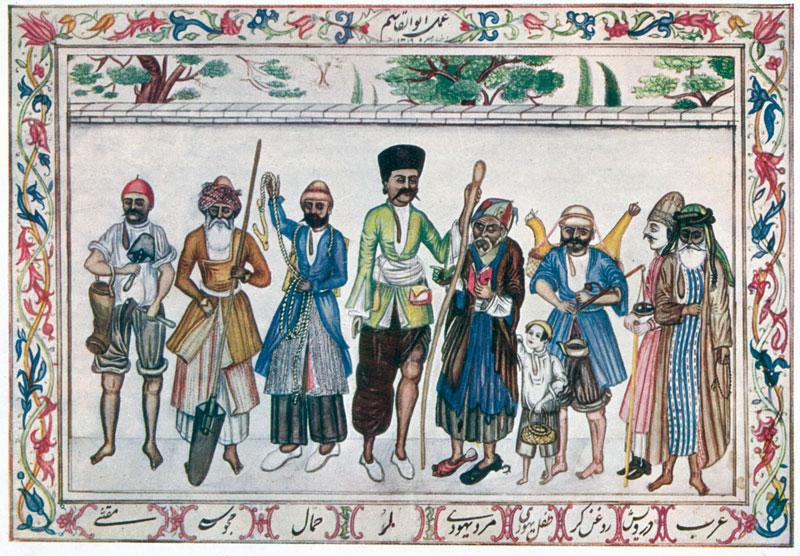 عمل ابوالقاسم
عرب درویش روغن کر طفل یهودی مرد یهودی لر حمال مجوسی مقنی